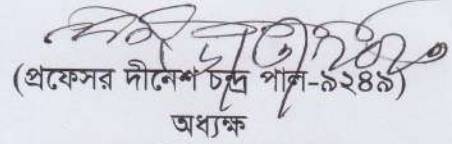 (প্রফেসর দীনেশ চন্দ্র পাল-৯২৪৯)
অধ্যক্ষ